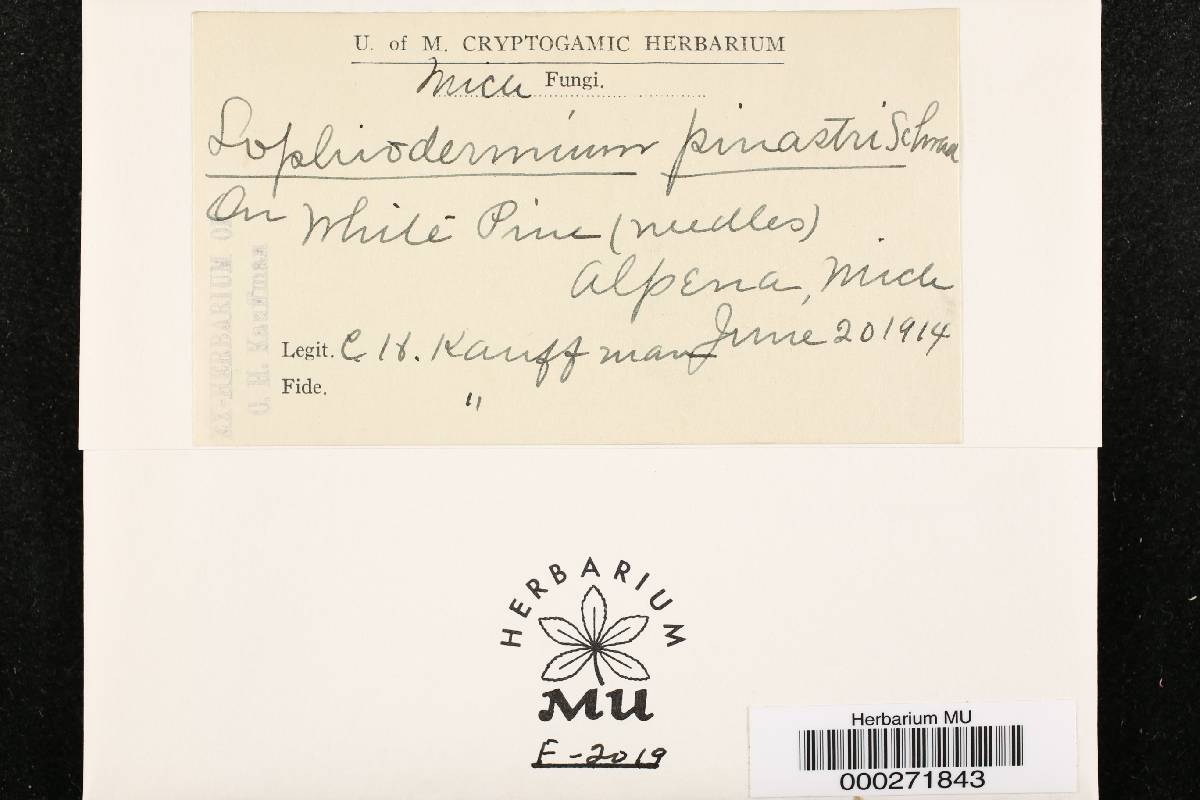 U. of M. CRYPTOGAMIC HERBARIUM
Mich Fungi.
Lophiodermium pinastri Schrad
On White Pine (needles)
Alpena, Mich
June 20 1914
Legit. C. H. Kauffman
Fide. "
EX-HERBARIUM OF
C. H. Kauffman
HERBARIUM
MU
F-2019
Herbarium MU
000271843